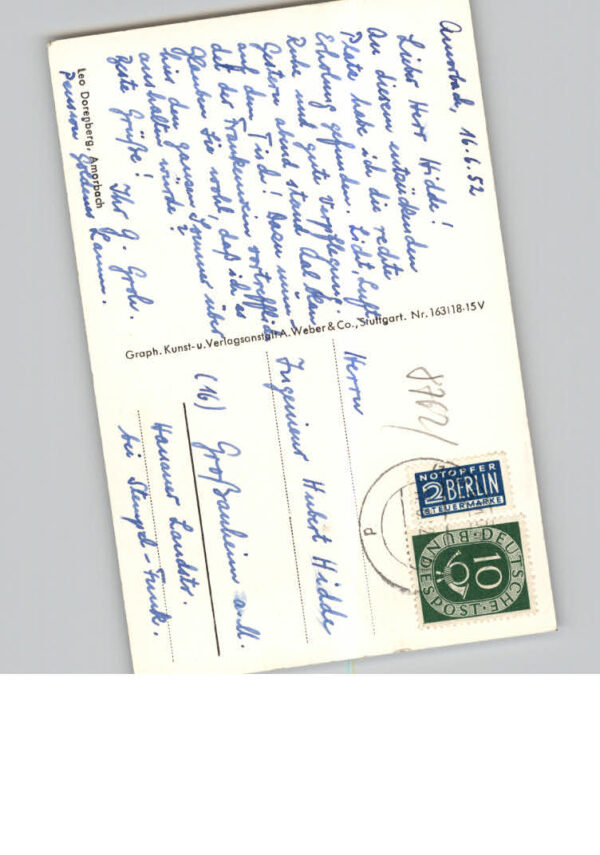 Amorbach, 16.6.52
Lieber Herr Hidde!
An diesem entzückenden
Platz habe ich die rechte
Erholung gefunden. Licht, Luft,
Ruhe und gute Verpflegung.
Gestern abend stand
auf dem Tisch! Dazu
daß der Frankenwein vortrefflich
Glauben Sie wohl, daß ich es
hier den ganzen Sommer über
aushalten würde?
Beste Grüße! Ihr G. Groh.
Pension Goldenes Lamm.
Leo Dorenberg, Amorbach
Graph. Kunst- u. Verlagsanstalt A. Weber & Co., Stuttgart. Nr. 163118-15V
8762/
NOTOPFER
2 BERLIN
STEUERMARKE
10
DEUTSCHE
BUNDESPOST
Herrn
Ingenieur Hubert Hidde
(16) Großauheim a.M.
Hanauer Landstr.
bei Stempel-Funk.